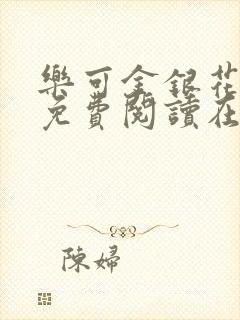 樂可金銀花
免費閱讀在
陳婦